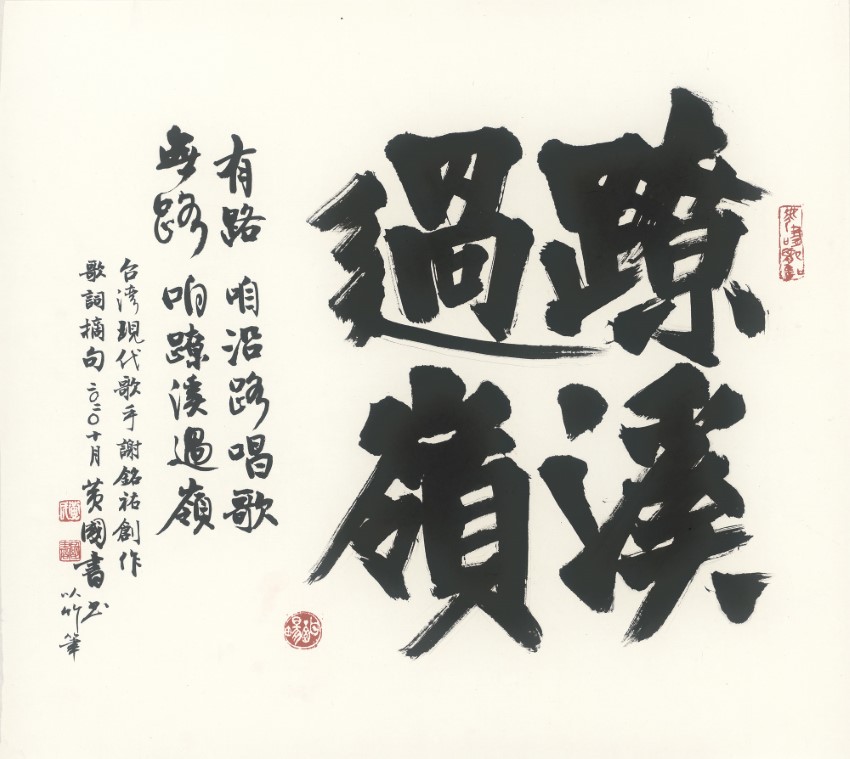 蹽溪
過嶺
有路 咱沿路唱歌
無路 咱蹽溪過嶺
台灣現代歌手謝銘祐創作
歌詞摘句 二〇二〇十月 黃國書书
以竹筆